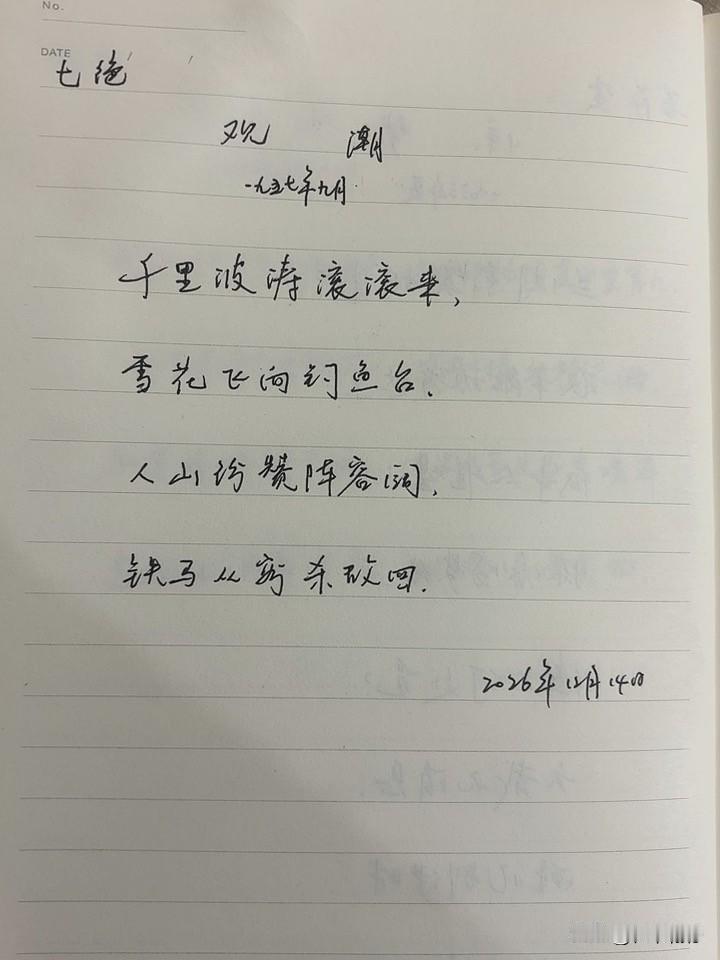 No.
DATE
七绝
观 潮
一九五七年九月
千里波涛滚滚来,
雪花飞向钓鱼台.
人山纷赞阵容阔,
铁马从容杀敌回.
2026年12月14日